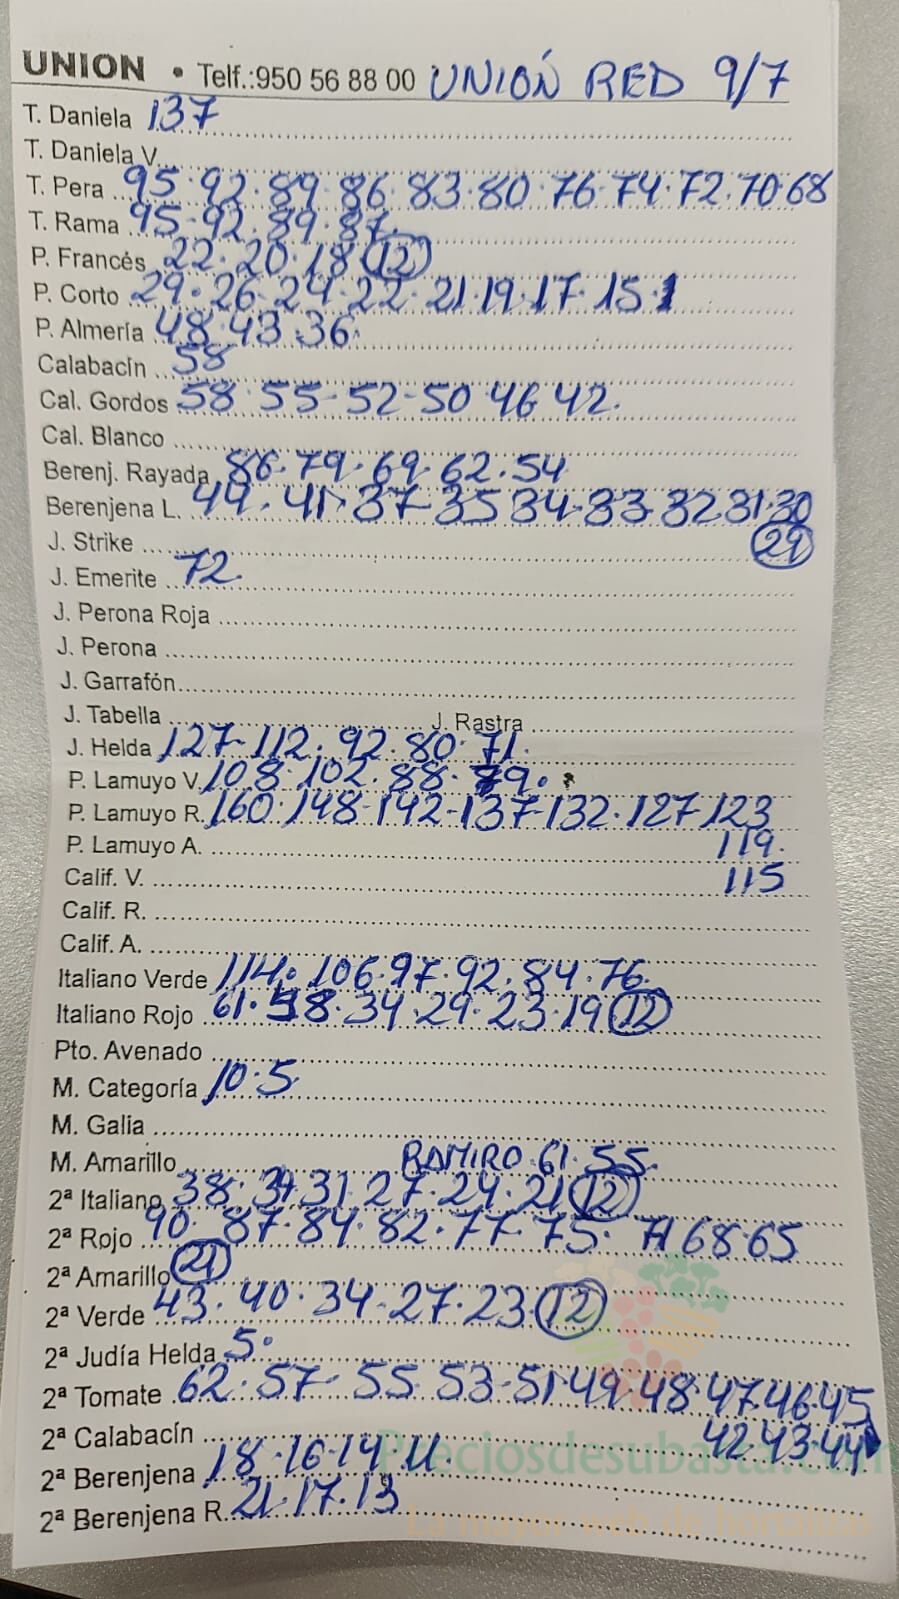 UNION • Telf.:950 56 88 00 UNIÓN RED 9/7
T. Daniela 137
T. Daniela V.
T. Pera 95. 92. 89. 86. 83. 80. 76. 74. 72. 70. 68
T. Rama 95. 92. 89. 87.
P. Francés 22. 20. 18 12
P. Corto 29. 26. 24. 22. 21. 19. 17. 15.
P. Almería 48. 43. 36.
Calabacín 58
Cal. Gordos 58 55 - 52 - 50 46 42.
Cal. Blanco
Berenj. Rayada 86. 79. 69. 62. 54
Berenjena L. 44. 41. 37 - 35 34 - 33 - 32 31. 30
J. Strike 29
J. Emerite 72.
J. Perona Roja
J. Perona
J. Garrafón
J. Tabella J. Rastra
J. Helda 127 - 112. 92. 80. 71.
P. Lamuyo V. 108. 102. 88. 79.
P. Lamuyo R. 160. 148 - 142 - 137 - 132. 127 123
P. Lamuyo A. 119.
Calif. V. 115
Calif. R.
Calif. A.
Italiano Verde 114. 106. 97. 92. 84. 76.
Italiano Rojo 61. 34. 29. 23. 19 12
Pto. Avenado
M. Categoría 10. 5.
M. Galia
M. Amarillo RAMIRO 61. 55.
2ª Italiano 38. 31. 27. 24. 21 12
2ª Rojo 90. 87. 84. 82. 77. 75. 71 68. 65
2ª Amarillo 21
2ª Verde 43. 40. 34 - 27. 23. 12
2ª Judía Helda 5.
2ª Tomate 62. 57 - 55 53 - 51. 49. 48. 47. 46. 45
2ª Calabacín 42 43. 44
2ª Berenjena 18. 16. 14. 11.
2ª Berenjena R. 21. 17. 13
Preciosdesubasta.com
La mayor web de hortalizas